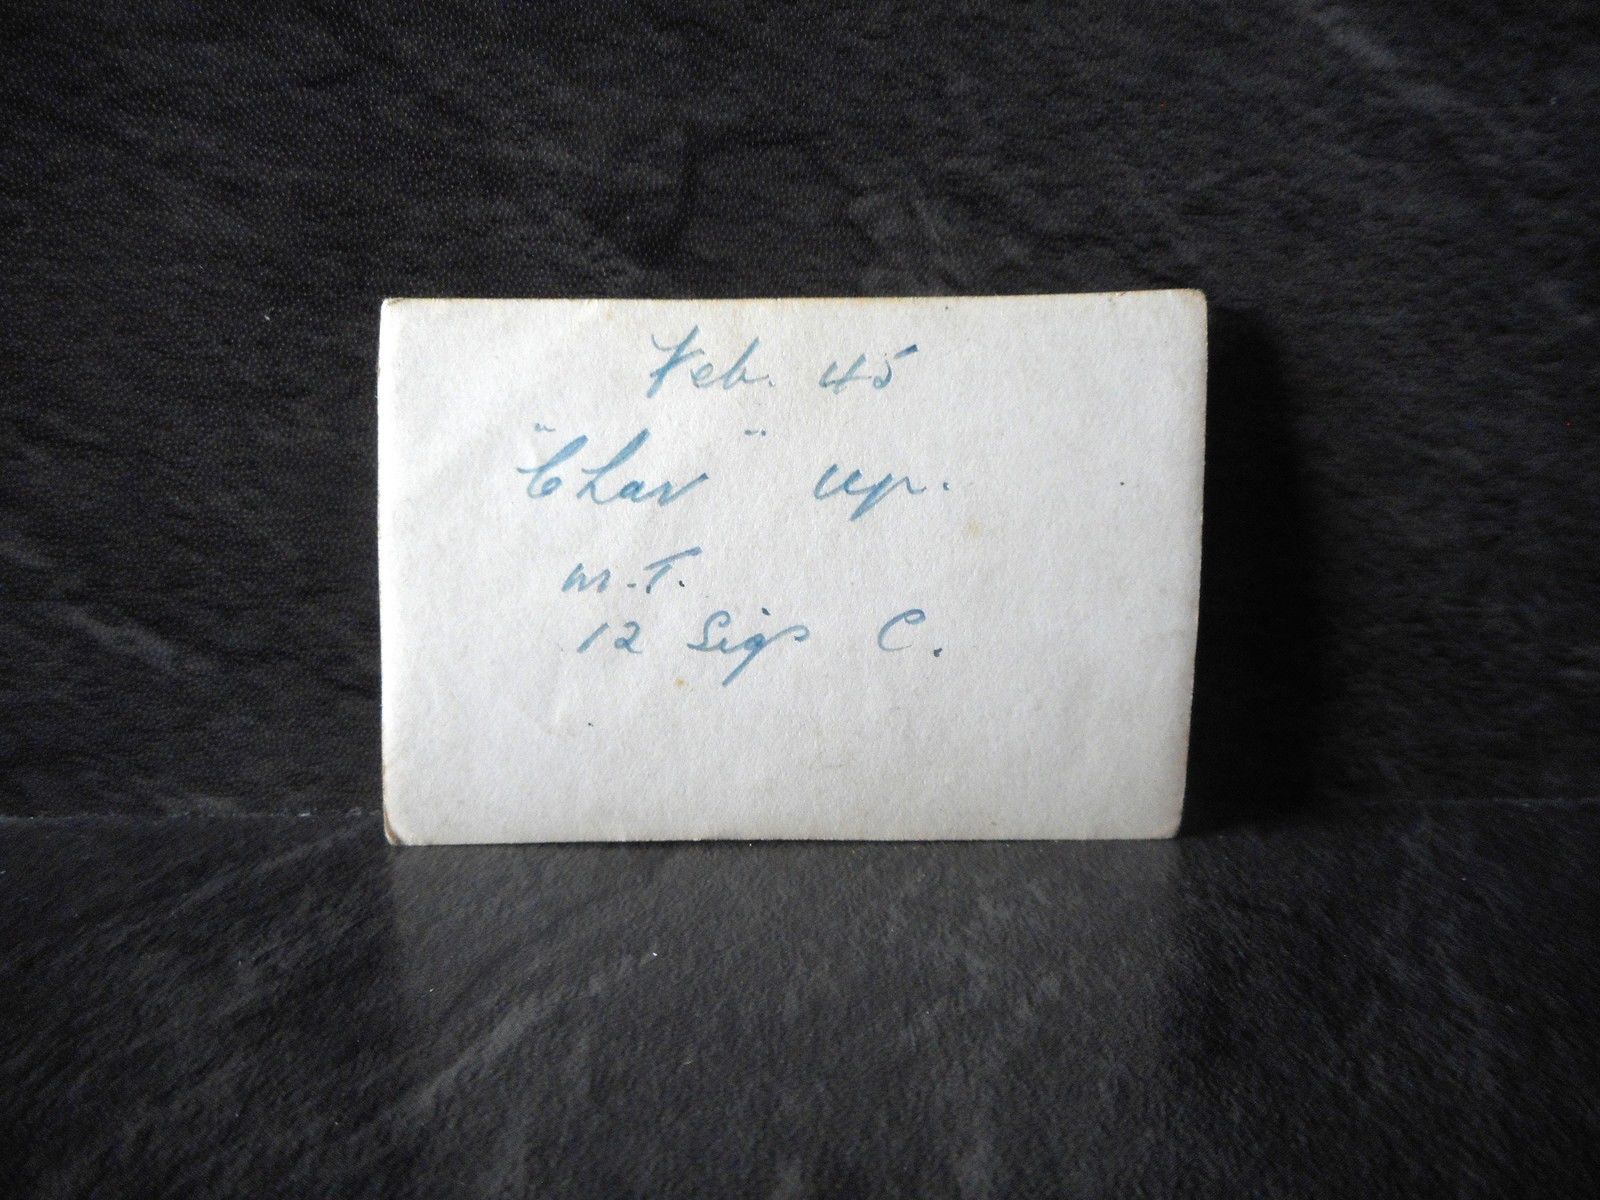 Feb. 45
"Chav" up.
M.T.
12 Sigs C.